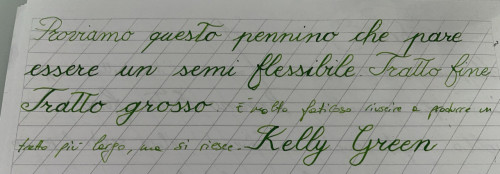 Proviamo questo pennino che pare
essere un semi flessibile. Tratto fine,
Tratto grosso. È molto faticoso riuscire a produrre un
tratto più largo, ma si riesce. Kelly Green